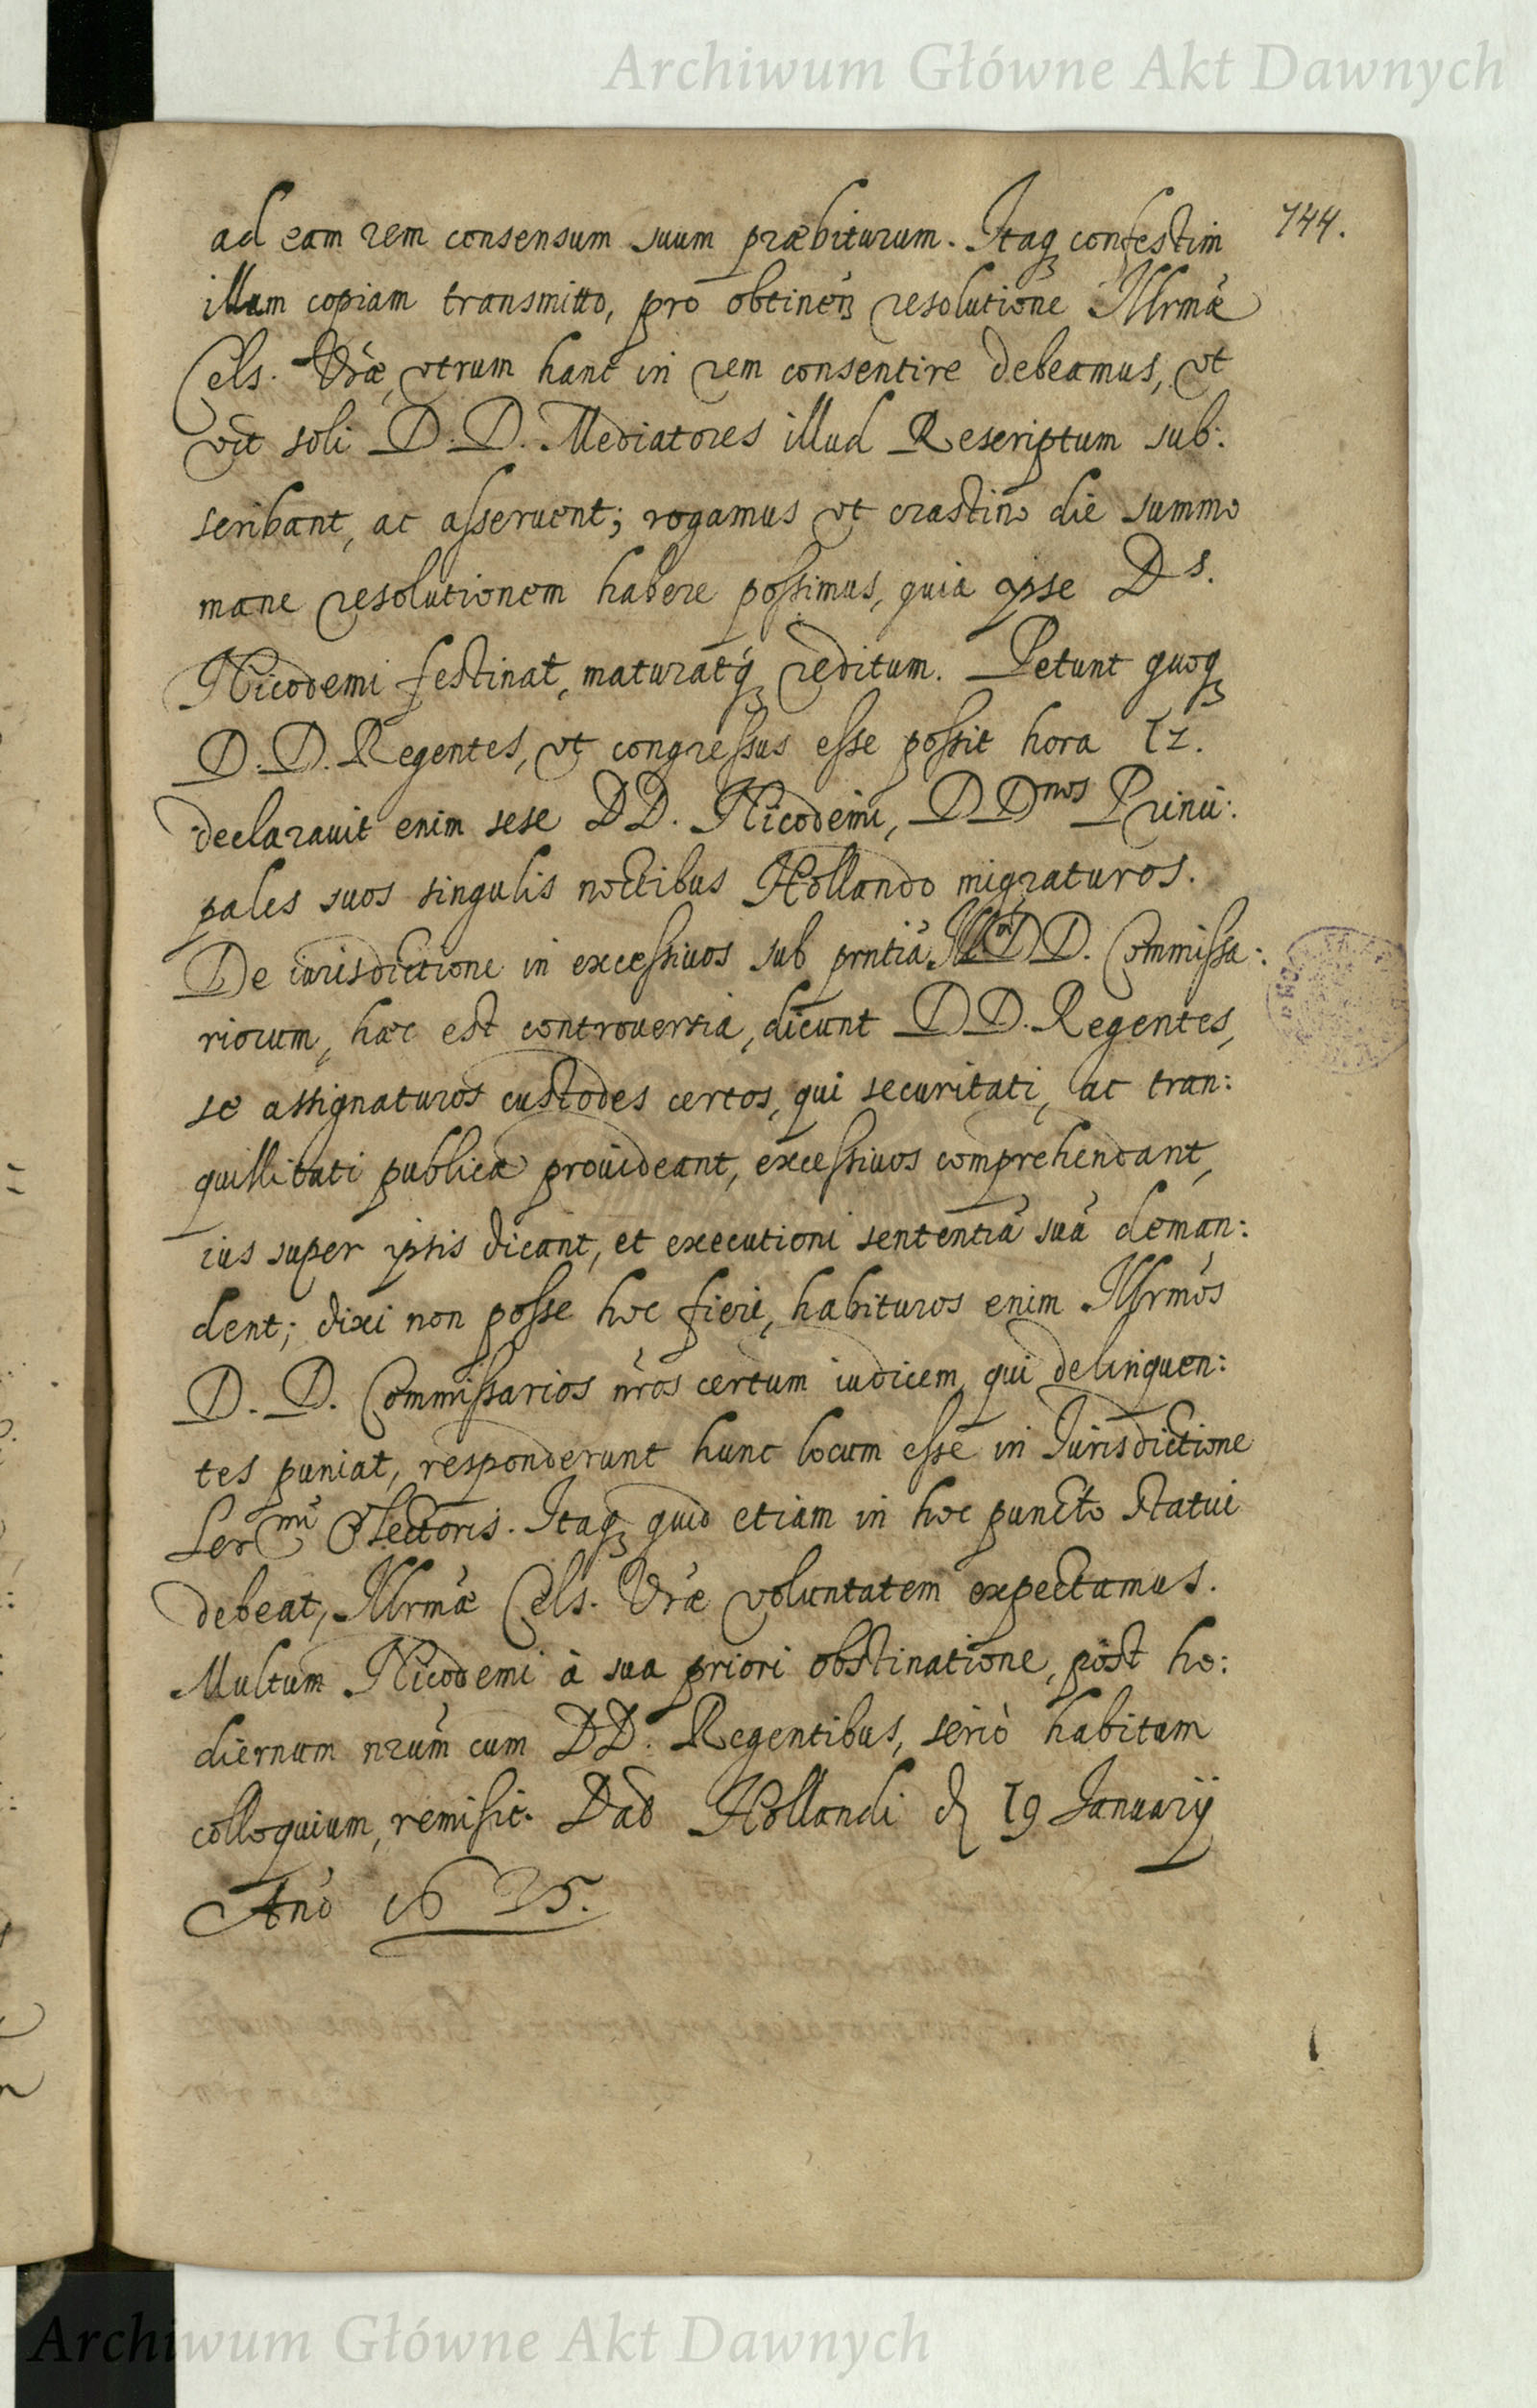 Archiwum Główne Akt Dawnych
744.
ad eam rem consensum suum præbiturum. Itaq confestim
illam copiam transmitto, pro obtinen resolutione Illrmæ
Cels. Vræ, vtrum hanc in rem consentire debeamus, vt
vit soli D. D. Mediatores illud Rescriptum sub:
scribant, ac asseruent; rogamus vt crastino die summo
mane resolutionem habere possimus, quia ipse Ds.
Nicodemi festinat, maturatq reditum. Petunt quoq
D. D. Regentes, vt congressus esse possit hora 12.
declarauit enim sese DD. Nicodemi, DDnos Princi:
pales suos singulis noctibus Hollando migraturos.
De iurisdictione in excessiuos sub prntia Illm DD. Commissa:
riorum, hæc est controuersia, dicunt DD. Regentes,
se assignaturos custodes certos, qui securitati, ac tran:
quillitati publicæ prouideant, excessiuos comprehendant,
ius super ipsis dicant, et executioni sententiã suã deman:
dent; dixi non posse hoc fieri, habituros enim Illrmos
D. D. Commissarios nros certum iudicem, qui delinquen:
tes puniat, responderunt hunc locum esse in Iurisdictione
Sermi Electoris. Itaq quid etiam in hoc puncto statui
debeat, Illrmæ Cels. Vræ voluntatem expectamus.
Multum Nicodemi à sua priori obstinatione, post ho:
diernum nrum cum DD. Regentibus, seriò habitum
colloquium, remisit. Dab Hollandi d 19 Januarij
Año 1635.
Archiwum Główne Akt Dawnych